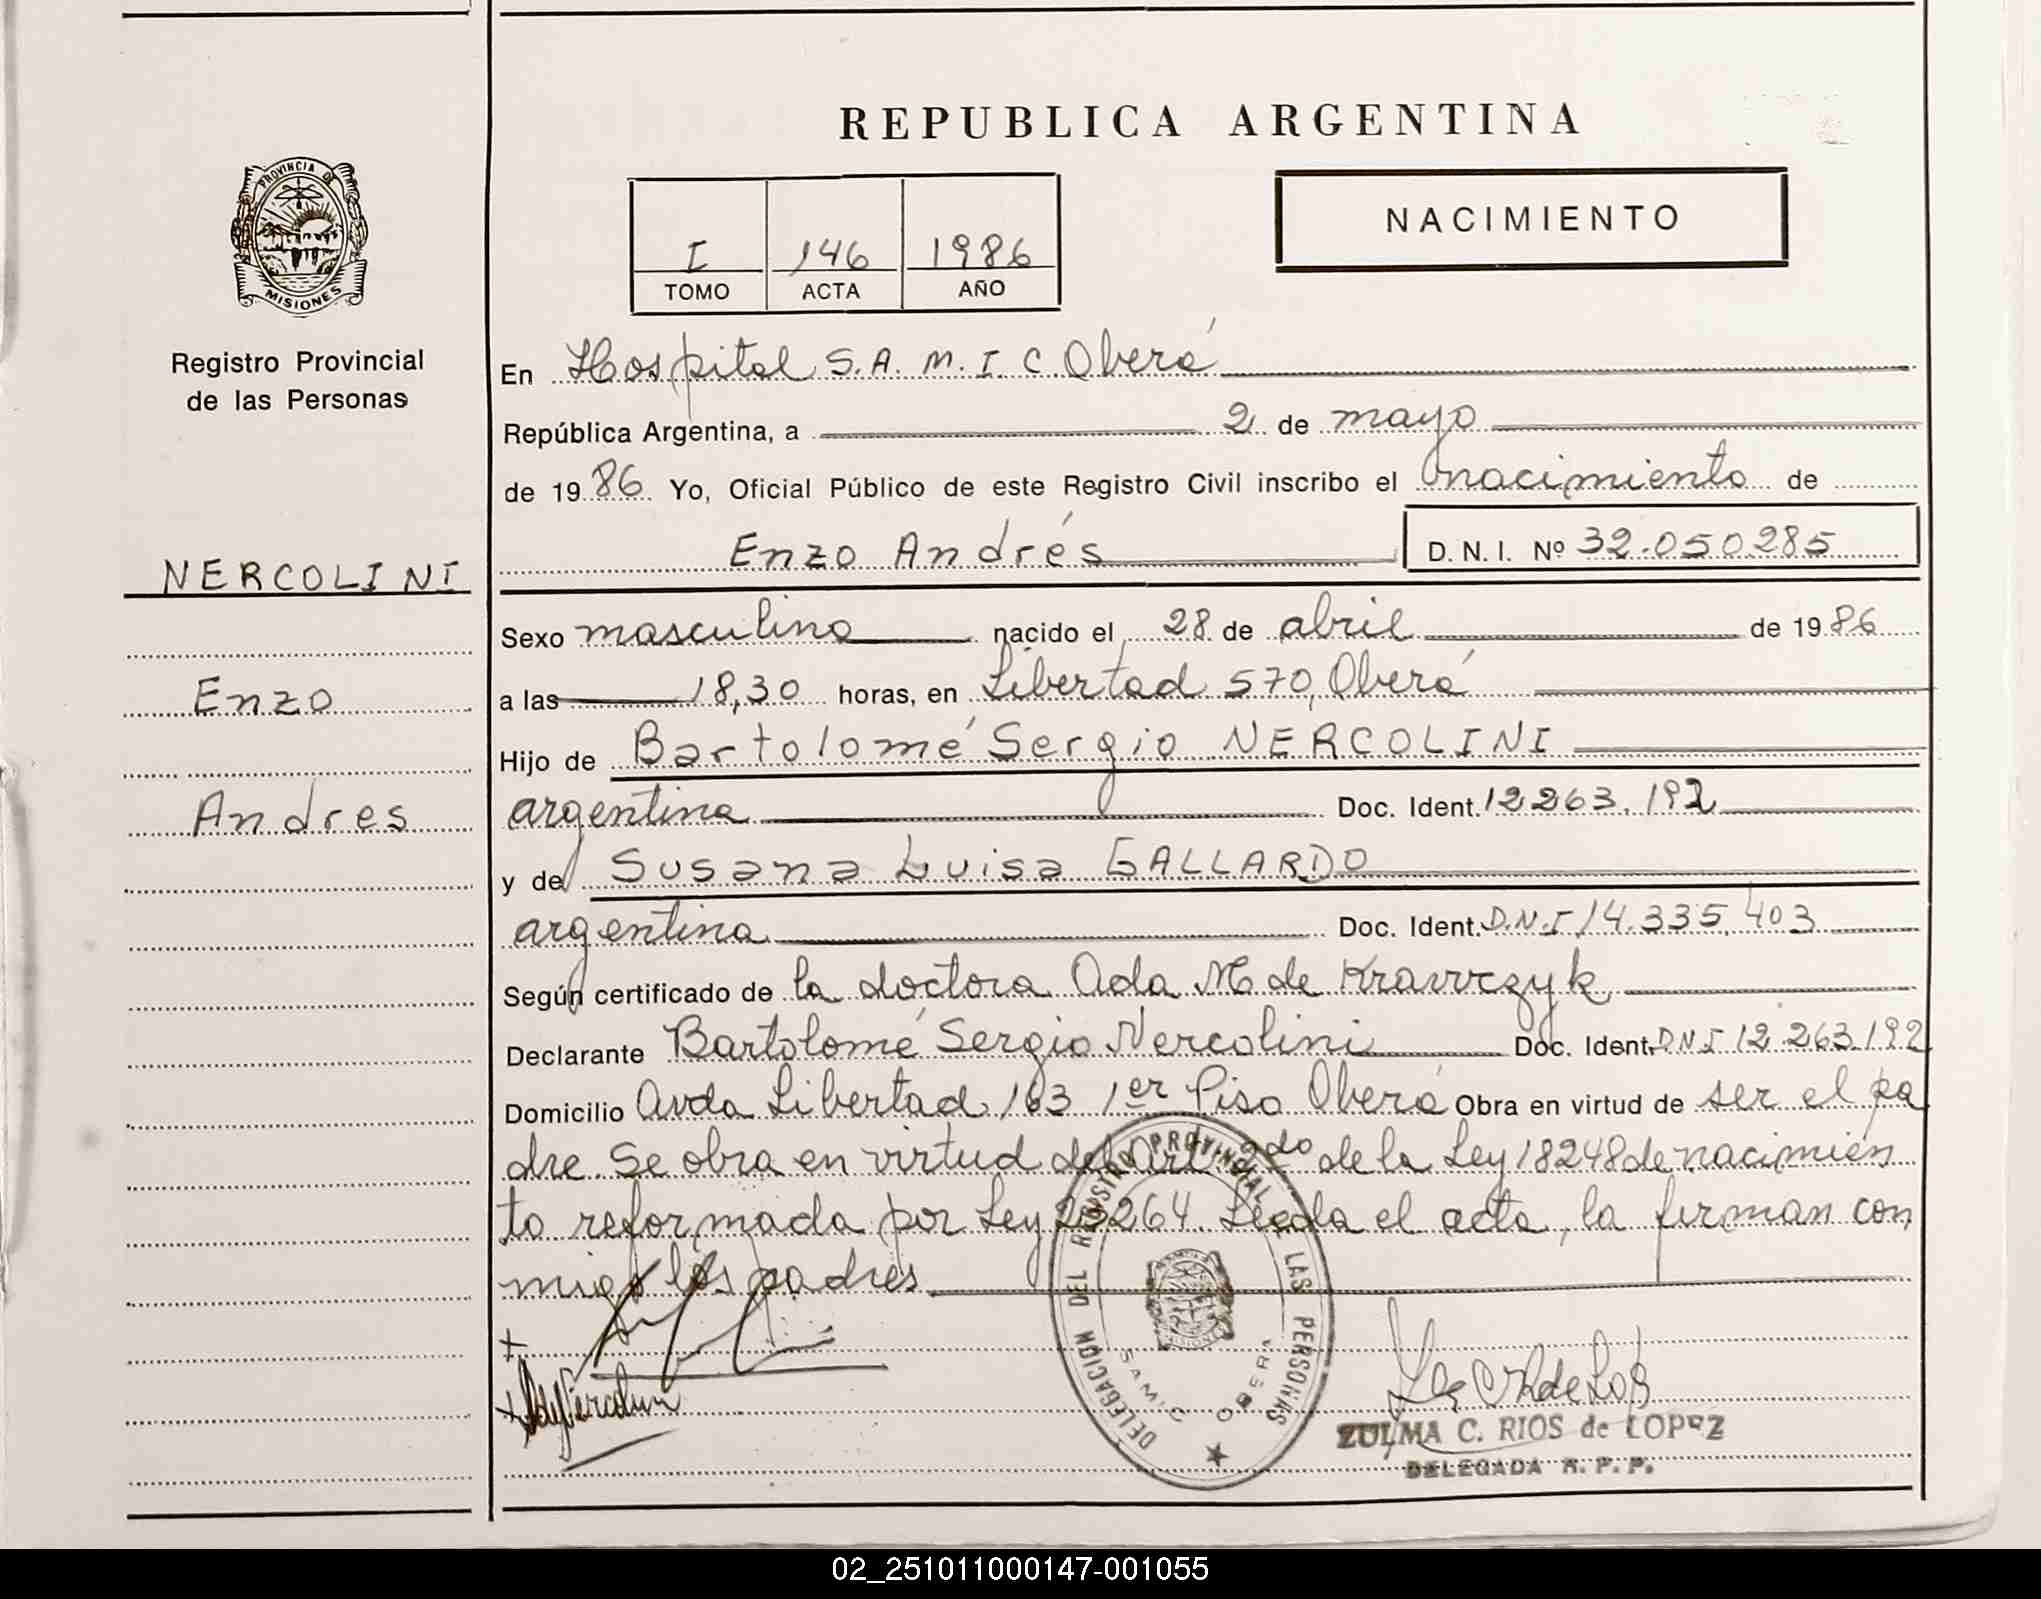 REPUBLICA ARGENTINA
PROVINCIA DE
MISIONES
Registro Provincial
de las Personas
I 146 1986
TOMO ACTA AÑO
NACIMIENTO
En Hospital S.A.M.I.C Oberá
República Argentina, a 2 de mayo
de 1986 Yo, Oficial Público de este Registro Civil inscribo el nacimiento de
Enzo Andrés D.N.I. Nº 32.050285
NERCOLINI
Enzo
Andres
Sexo masculino nacido el 28 de abril de 1986
a las 18,30 horas, en Libertad 570, Oberá
Hijo de Bartolomé Sergio NERCOLINI
argentina Doc. Ident. 12263.192
y de Susana Luisa GALLARDO
argentina Doc. Ident. D.N.I 14.335.403
Según certificado de la doctora Ada M de Krawczyk
Declarante Bartolomé Sergio Nercolini Doc. Ident. DNI 12.263.192
Domicilio Avda Libertad 163 1er Piso Oberá Obra en virtud de ser el pa
dre. Se obra en virtud del Art 2do de la Ley 18248 de nacimien
to reformada por Ley 23264. Leída el acta, la firman con
migo los padres
DELEGACION DEL REGISTRO PROVINCIAL DE LAS PERSONAS
SAMIC OBERA
ZULMA C. RIOS de LOPEZ
DELEGADA R. P. P.
02_251011000147-001055